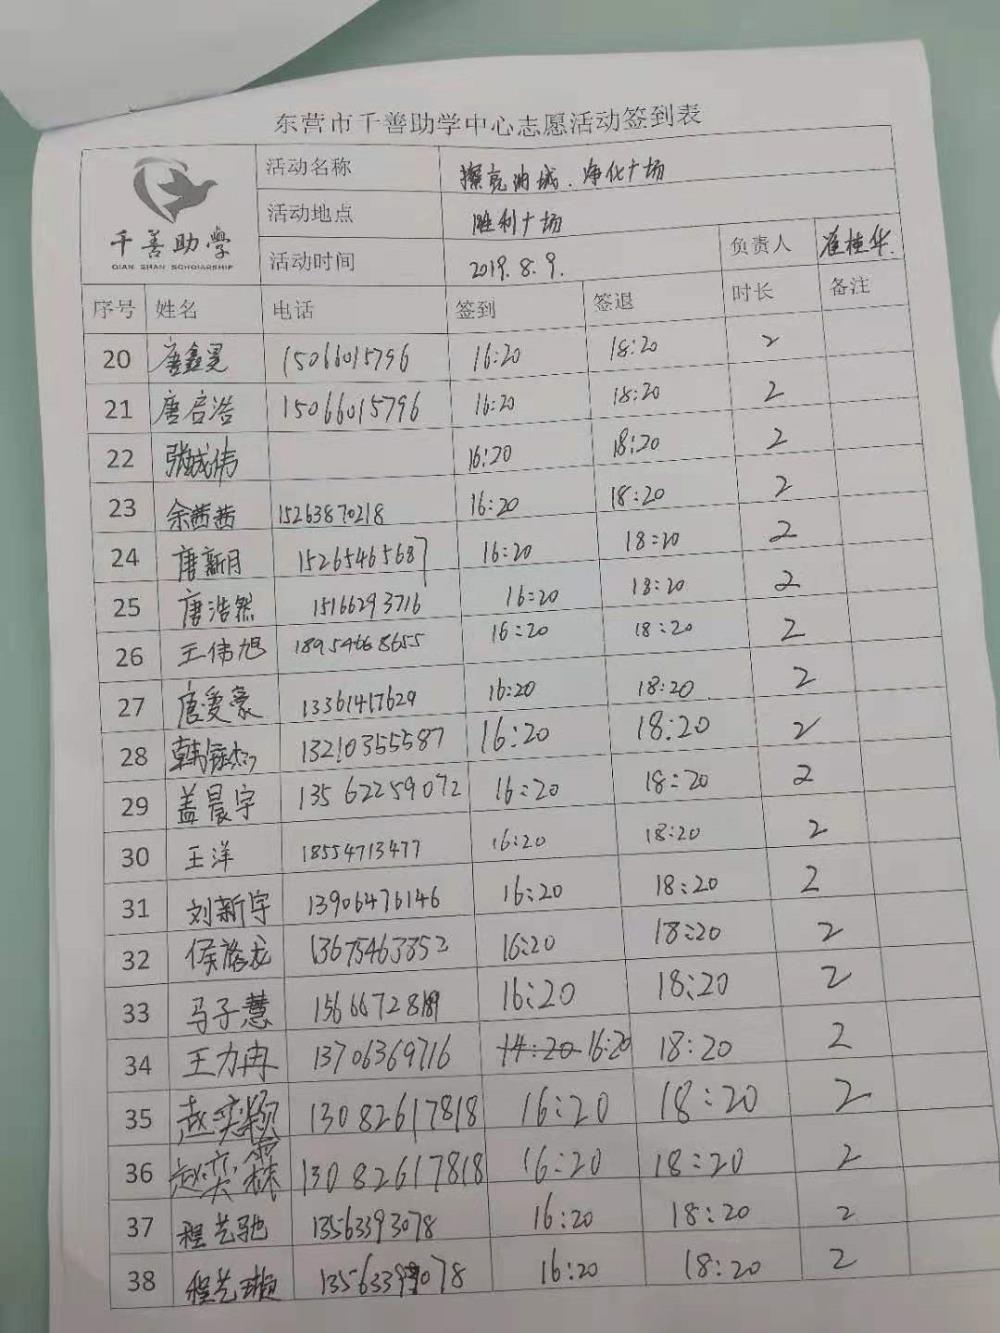 东营市千善助学中心志愿活动签到表
千善助学
QIAN SHAN SCHOLARSHIP
活动名称 擦亮油城、净化广场
活动地点 胜利广场
活动时间 2019.8.9. 负责人 崔桂华
序号 姓名 电话 签到 签退 时长 备注
20 唐鑫昊 15066015796 16:20 18:20 2
21 唐启浩 15066015796 16:20 18:20 2
22 张成伟 16:20 18:20 2
23 余茜茜 15263870218 16:20 18:20 2
24 唐新月 15265465687 16:20 18:20 2
25 唐浩然 15166293716 16:20 18:20 2
26 王伟旭 18954668655 16:20 18:20 2
27 唐爱豪 13361417629 16:20 18:20 2
28 13210355587 16:20 18:20 2
29 盖晨宇 13562259072 16:20 18:20 2
30 王洋 18554713477 16:20 18:20 2
31 刘新宇 13906476146 16:20 18:20 2
32 13675463352 16:20 18:20 2
33 马子慧 16:20 18:20 2
34 王力冉 13706369716 14:20 16:20 18:20 2
35 赵奕颖 13082617818 16:20 18:20 2
36 赵奕霖 13082617818 16:20 18:20 2
37 程艺驰 13563393078 16:20 18:20 2
38 程艺璇 16:20 18:20 2